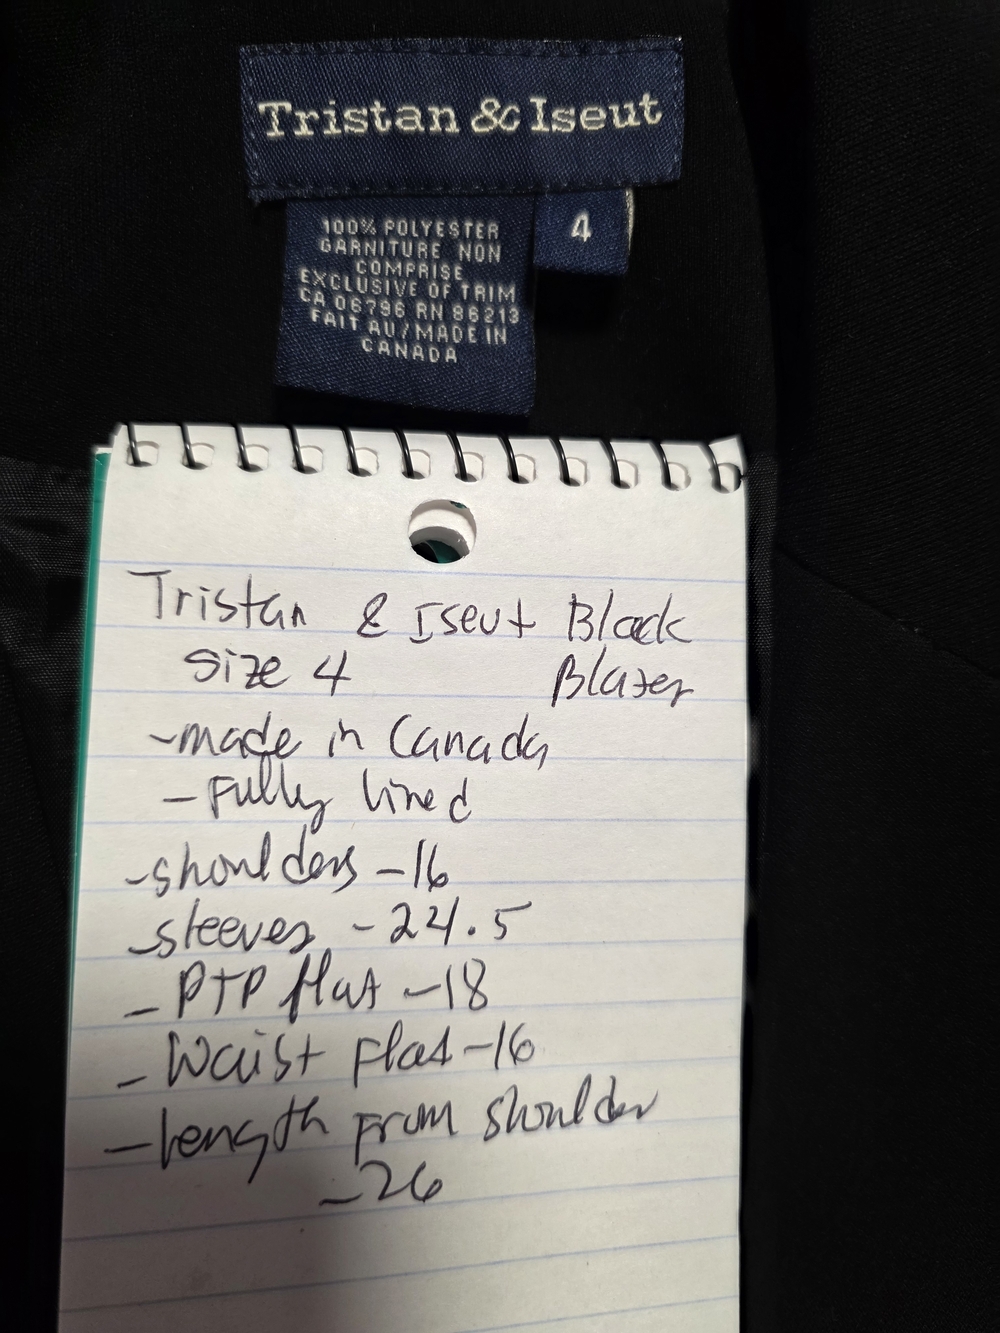 Tristan & Iseut
4
100% POLYESTER
GARNITURE NON
COMPRISE
EXCLUSIVE OF TRIM
CA 06796 RN 86213
FAIT AU / MADE IN
CANADA
Tristan & Iseut Black
Size 4 Blazer
- made in Canada
- Fully lined
- shoulders - 16
- sleeves - 24.5
- PTP flat - 18
- Waist flat - 16
- length from shoulder
- 26